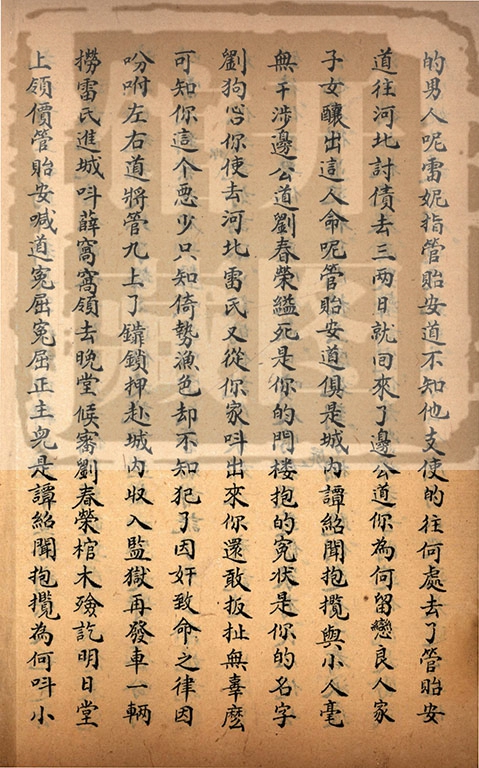 的男人呢雷妮指管貽安道不知他支使的往何處去了管貽安
道往河北討債去三兩日就回來了邊公道你為何留戀良人家
子女釀出這人命呢管貽安道俱是城内譚紹聞抱攬與小人毫
無干涉邊公道劉春榮縊死是你的門楼抱的冤状是你的名字
劉狗㕩你使去河北雷氏又從你家呌出來你還敢扳扯無辜麽
可知你這个悪少只知倚勢漁色却不知犯了因奸致命之律因
吩咐左右道將管九上了鐐鎖押赴城内収入監獄再發車一輌
撈雷氏進城呌薛窩窩領去晚堂候審劉春榮棺木殮訖明日堂
上領價管貽安喊道冤屈冤屈正主皃是譚紹聞抱攬為何呌小